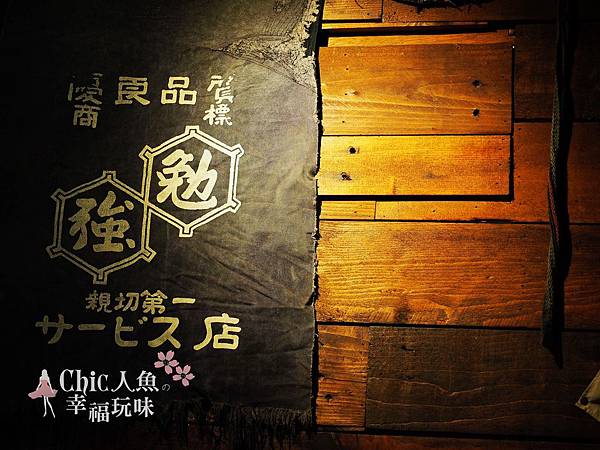 優良品質
商標
勉強
親切第一
サービス店
Chic人魚の
幸福玩味